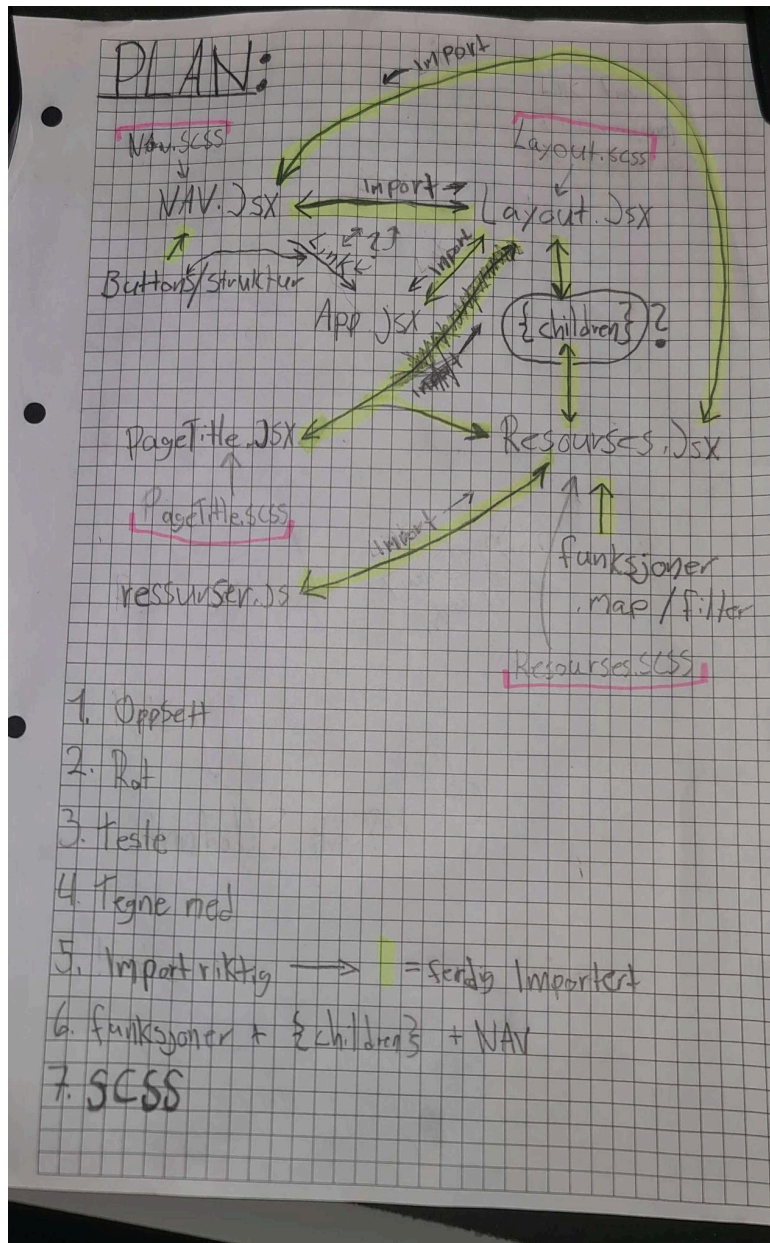 PLAN:
← Import
Nav.SCSS
Layout.scss
NAV.JSX
Import →
Layout.JSX
Buttons/struktur
Import
App.jsx
{children}?
PageTitle.JSX
Resourses.JSX
PageTitle.scss
Import →
funksjoner
.map/filter
ressurser.js
Resourses.SCSS
1. Oppsett
2. Rot
3. Teste
4. Tegne med
5. Import riktig → = ferdig Importert
6. funksjoner + {children} + NAV
7. SCSS